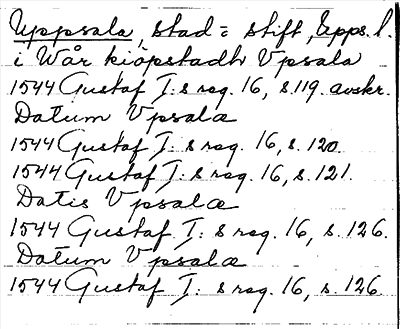 Uppsala, stad = stift, Upps. l.
i Wår kiöpstadh Vpsala
1544 Gustaf I: s reg. 16, s. 119. avskr.
Datum Vpsalæ
1544 Gustaf I: s reg. 16, s. 120.
1544 Gustaf I: s reg. 16, s. 121.
Datis Vpsalæ
1544 Gustaf I: s reg. 16, s. 126.
Datum Vpsalæ
1544 Gustaf I: s reg. 16, s. 126